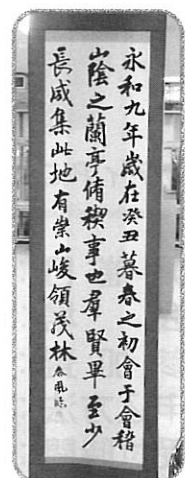 永和九年歲在癸丑暮春之初會于會稽
山陰之蘭亭脩稧事也羣賢畢至少
長咸集此地有崇山峻領茂林春風臨